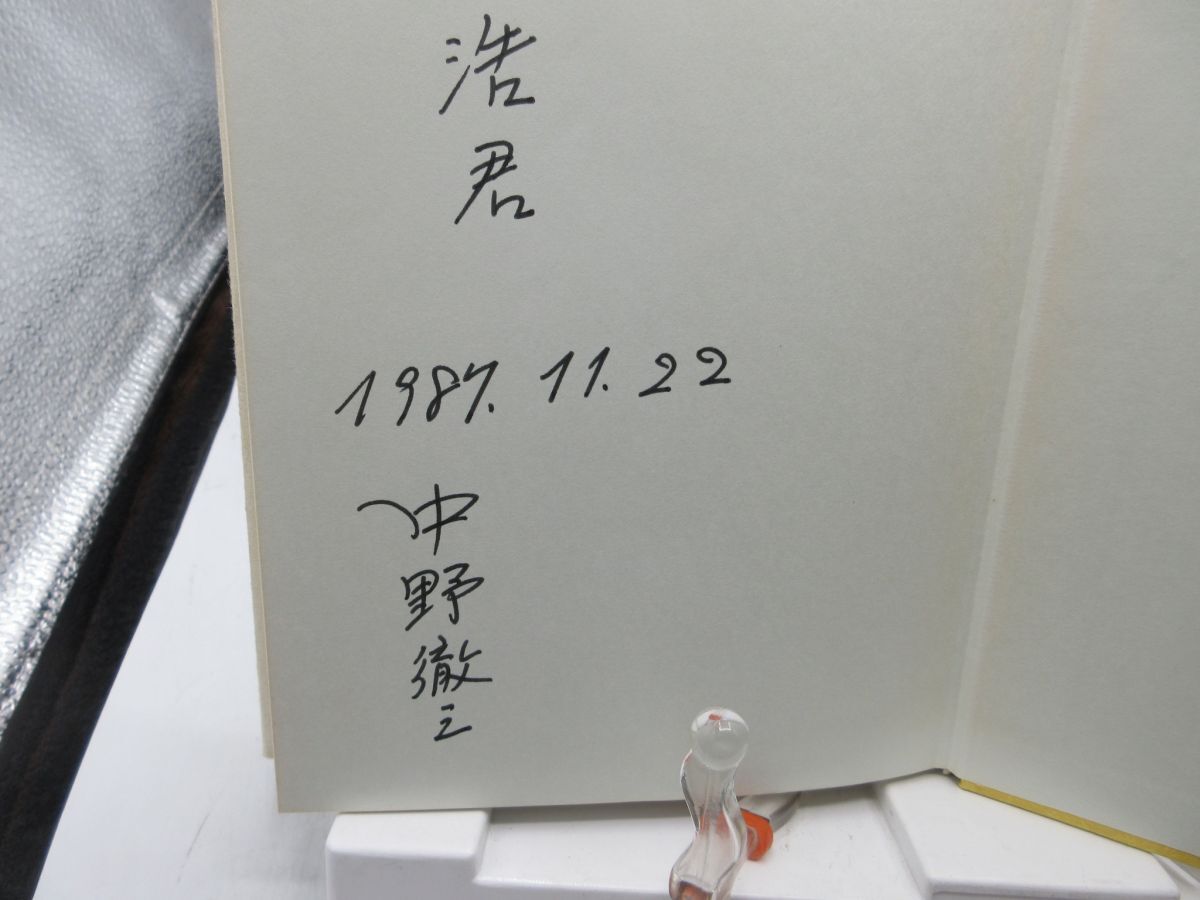 浩君
1987.11.22
中野徹三